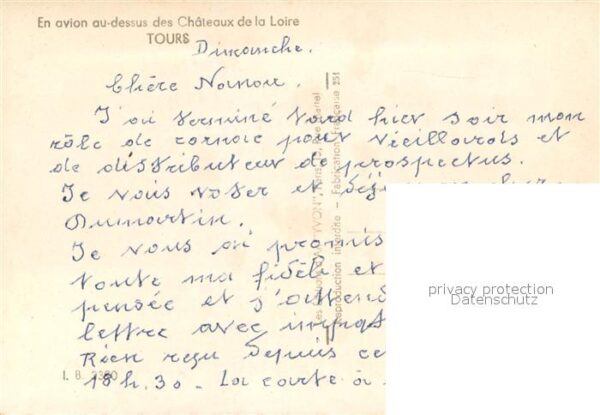 En avion au-dessus des Châteaux de la Loire
TOURS
Dimanche.
Chère Nanou.
J'ai terminé tard hier soir mon
rôle de cornac pour vieillards et
de distributeur de prospectus.
Je vais voter et
Dumartin.
Je vous ai promis
toute ma fidèle et
pensée et j'attends
lettre avec
Rien reçu depuis ce
18h.30 - La carte à
I. 8
"YVON"
Reproduction interdite - Fabrication française
privacy protection
Datenschutz